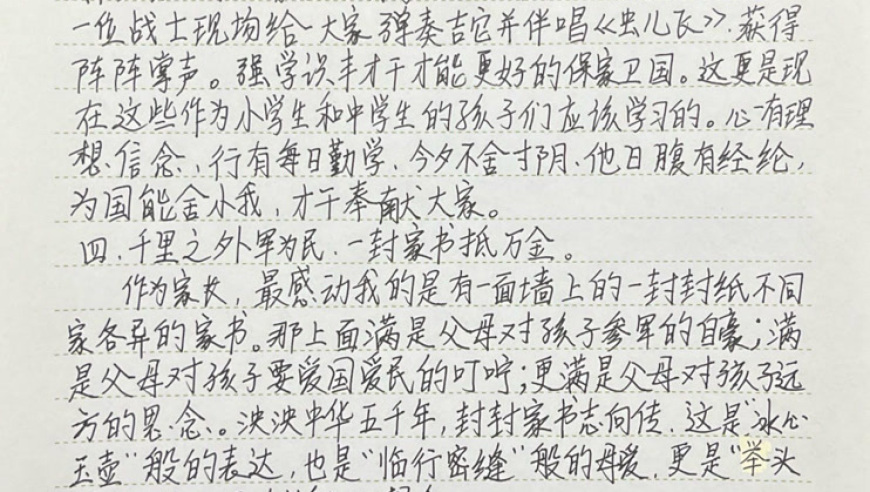 一位战士现场给大家弹奏吉它并伴唱《虫儿飞》.获得
阵阵掌声。强学识丰才干才能更好的保家卫国。这更是现
在这些作为小学生和中学生的孩子们应该学习的。心有理
想.信念、行有每日勤学.今夕不舍寸阴.他日腹有经纶,
为国能舍小我,才干奉献大家。
四.千里之外军为民.一封家书抵万金。
作为家长,最感动我的是有一面墙上的一封封纸不同
家各异的家书。那上面满是父母对孩子参军的自豪;满
是父母对孩子要爱国爱民的叮咛;更满是父母对孩子远
方的思念。泱泱中华五千年,封封家书志向传.这是"冰心
玉壶"般的表达,也是"临行密缝"般的母爱.更是"举头